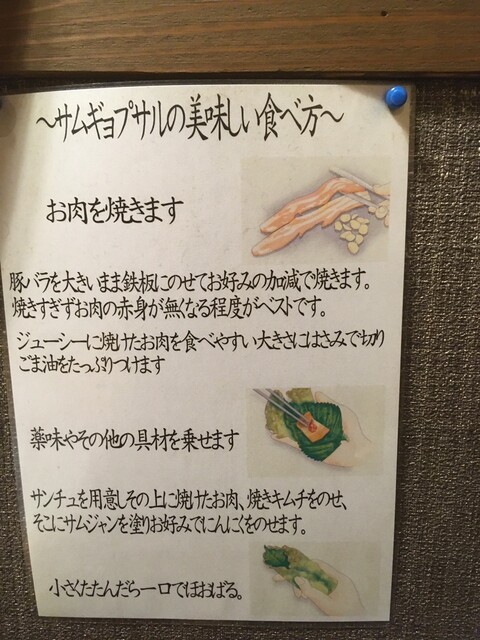 ～サムギョプサルの美味しい食べ方～
お肉を焼きます
豚バラを大きいまま鉄板にのせてお好みの加減で焼きます。
焼きすぎずお肉の赤身が無くなる程度がベストです。
ジューシーに焼けたお肉を食べやすい大きさにはさみで切り
ごま油をたっぷりつけます
薬味やその他の具材を乗せます
サンチュを用意しその上に焼けたお肉、焼きキムチをのせ、
そこにサムジャンを塗りお好みでにんにくをのせます。
小さくたたんだら一口でほおばる。